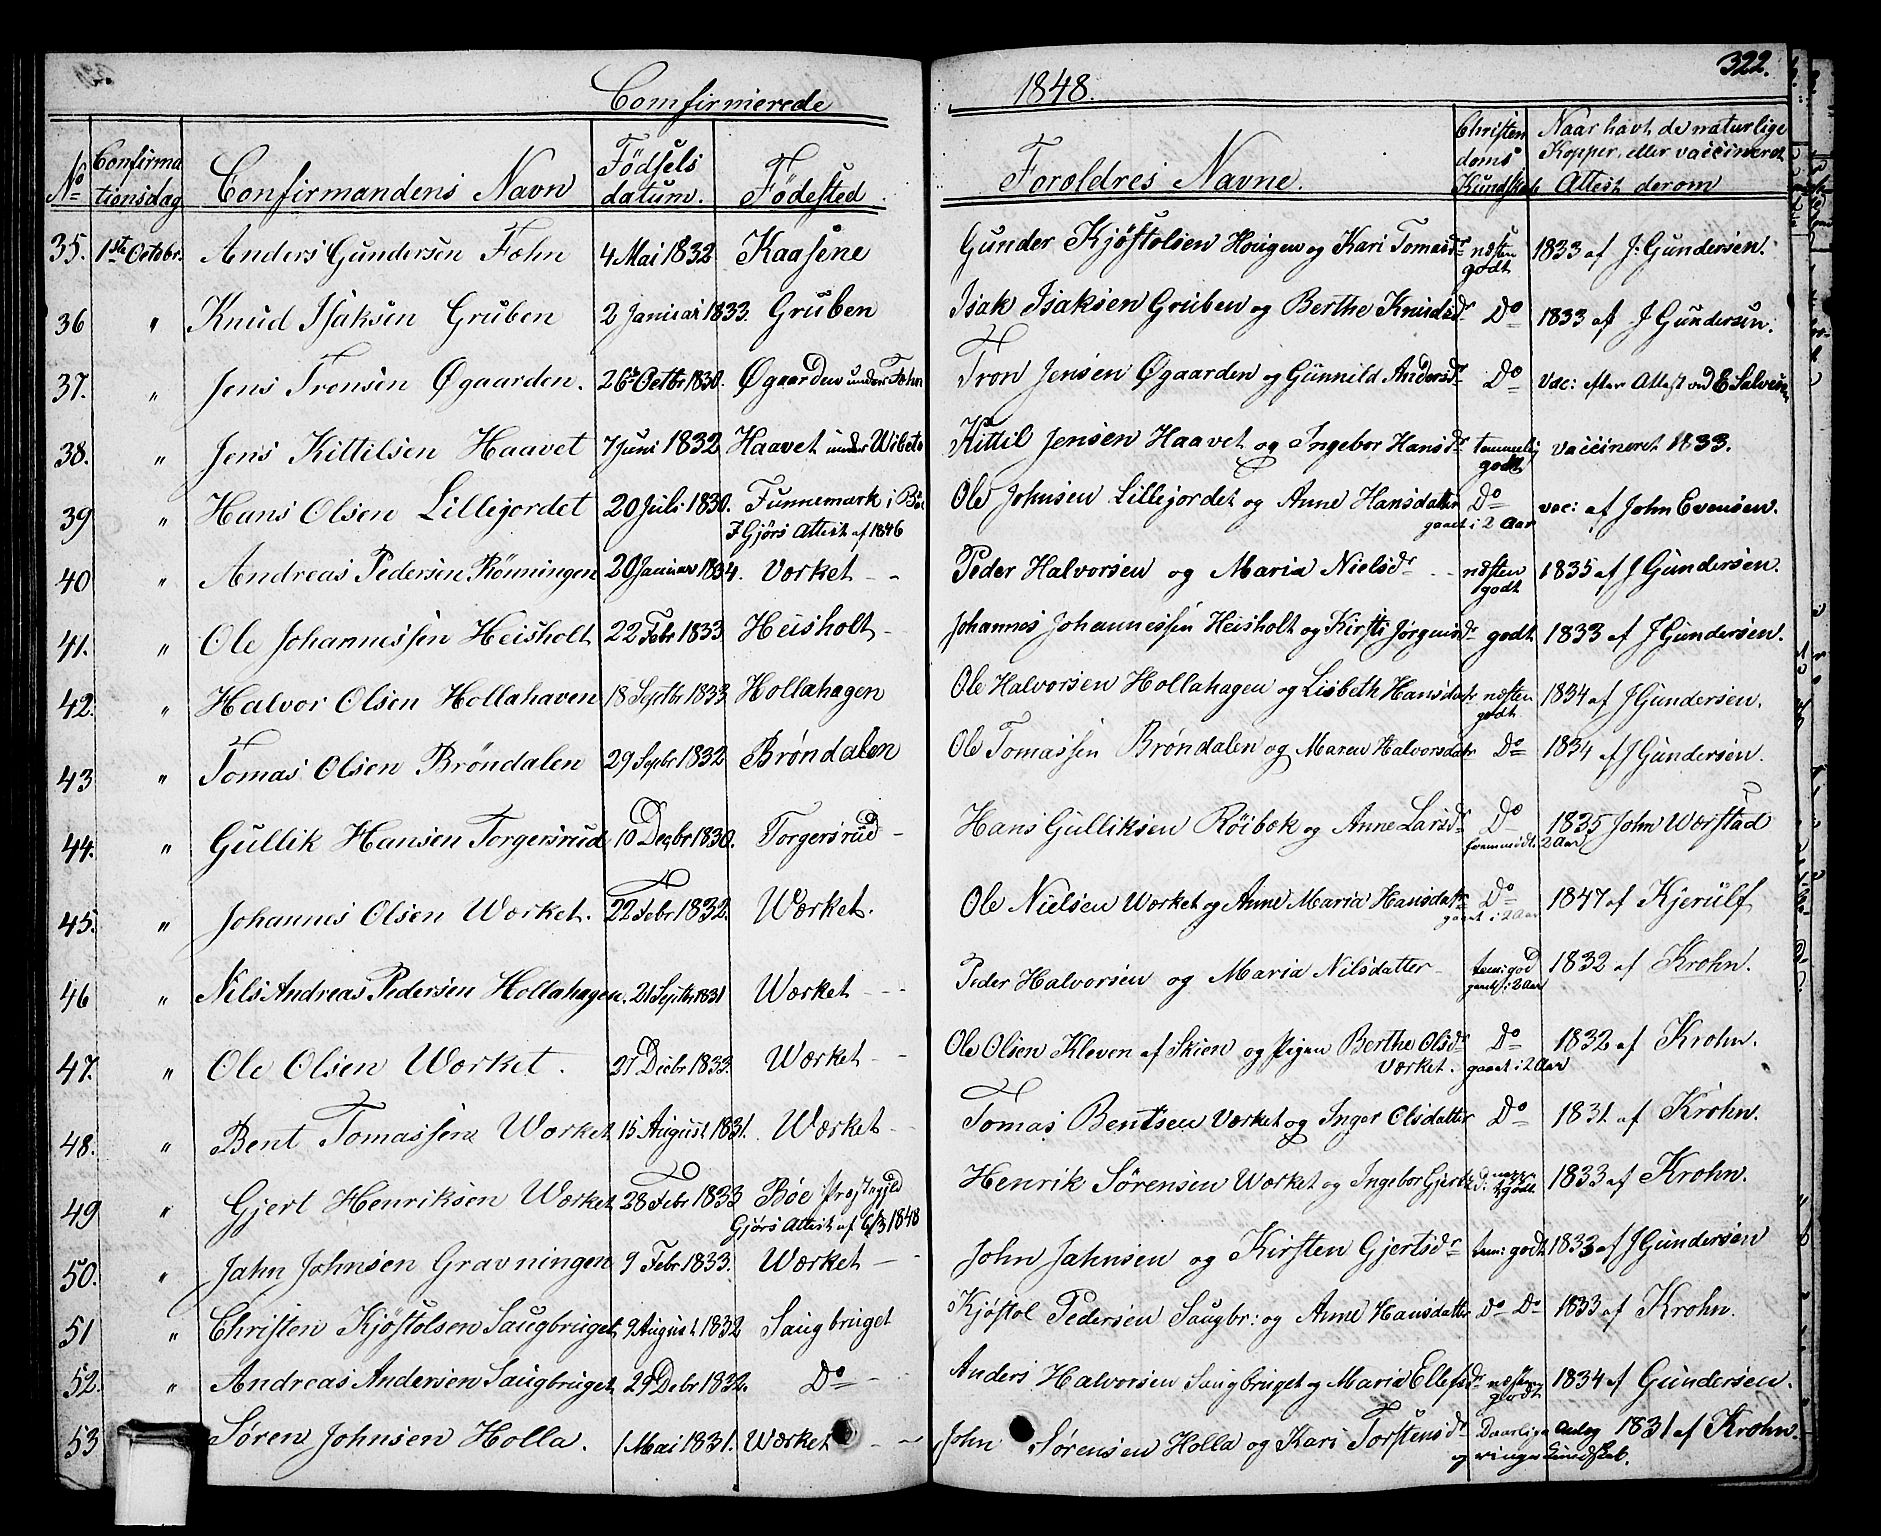 322.
Comfirmerede 1848.
No Confirmationsdag Confirmandens Navn Födsels datum. Födested Foroldres Navne. Christendoms Kundskab Naar havt de naturlige Kopper, eller vaccineret Attest derom
35. 1ste Octobr. Anders Gundersen Fohn 4 Mai 1832 Kaasene Gunder Kjøstolsen Hougen og Kari Tomasdr næsten godt 1833 af J: Gundersen.
36 " Knud Isaksen Gruben 2 Januar 1833. Gruben Isak Isaksen Gruben og Berthe Knudsdr Do 1833 af J Gundersen.
37. " Jens Tronsen Øgaarden. 26de Octbr 1830. Øgaarden under Fohn Tron Jensen Øgaarden og Gunnild Andersdr Do Vac: efter Attest ved E Salvesen
38. " Jens Kittilsen Haavet 7 Juni 1832 Haavet under Wibeto Kittil Jensen Haavet og Ingebor Hansdr temmelig godt vaccineret 1833.
39 " Hans Olsen Lillejordet 20 Juli 1830. Funnemark i Bö. Ole Johnsen Lillejordet og Anne Hansdatter Do vac: af John Evensen.
F Gjörs Attest af 1846 gaaet i 2 Aar
40 " Andreas Pedersen Rönningen 20 Januar 1834. Vorket - - Peder Halvorsen og Maria Nielsdr - - næsten godt 1835 af J Gundersen.
41. " Ole Johannessen Heisholt 22 Febr 1833 Heisholt - Johannes Johannessen Heisholt og Kirsti Jörgensdr godt 1833 af J Gundersen.
42. " Halvor Olsen Hollahaven 18 Septbr 1833 Hollahagen Ole Halvorsen Hollahagen og Lisbeth Hansdatr næsten godt 1834 af J Gundersen.
43 " Tomas Olsen Bröndalen 29 Sepbr 1832 Brøndalen Ole Tomassen Brøndalen og Maren Halvorsdatr Do 1834 af J Gundersen.
44. " Gullik Hansen Torgersrud 10 Decbr 1830. Torgersrud - Hans Gulliksen Röibok og Anne Larsdr Do 1835 John Wærstad
fremmödt 2 Aar
45. " Johannes Olsen Worket. 22 Febr 1832. Wærket. Ole Nielsen Wærket og Anne Maria Hansdatr Do 1847 af Kjerülf
gaaet i 2 Aar
46 " Nils Andreas Pedersen Hollahagen. 21 Septbr 1831 Wærket - - - Peder Halvorsen og Maria Nilsdatter - tem: god 1832 af Krohn.
gaaet i 2 Aar
47. " Ole Olsen Worket. 27 Decbr 1832. Wærket - - Ole Olsen Kleven af Skien og Pigen Berthe Olsdr Værket. Do 1832 af Krohn.
gaaet i 2 Aar
48. " Bent Tomassen Worket 15 August 1831. Wærket - - Tomas Bentsen Værket og Inger Olsdatter Do 1831 af Krohn.
49 " Gjert Henriksen Worket 28 Febr 1833 Böe Præstegjeld Henrik Sörensen Wærket og Ingebor Gjertsd: godt. 1833 af Krohn.
Gjörs Attest af 6/3 1848
50. " Jahn Johnsen Gravningen 9 Febr 1833. Wærket - - John Jahnsen og Kirsten Gjertsdr tem: godt 1833 af J Gundersen
51 " Christen Kjöstolsen Saugbruget 9 August 1832 Saugbruget Kjøstol Pedersen Saugbr: og Anne Hansdatter Do Do 1833 af Krohn.
52. " Andreas Andersen Saugbruget 29 Debr 1832. Do - Anders Halvorsen Saugbruget og Maria Ellefsdr næsten godt 1834 af Gundersen.
53 Søren Johnsen Holla. 1 Mai 1831. Wærket - - John Sørensen Holla og Kari Torstensdr Daarlige Anlæg og ringe Kundskab. 1831 af Krohn.